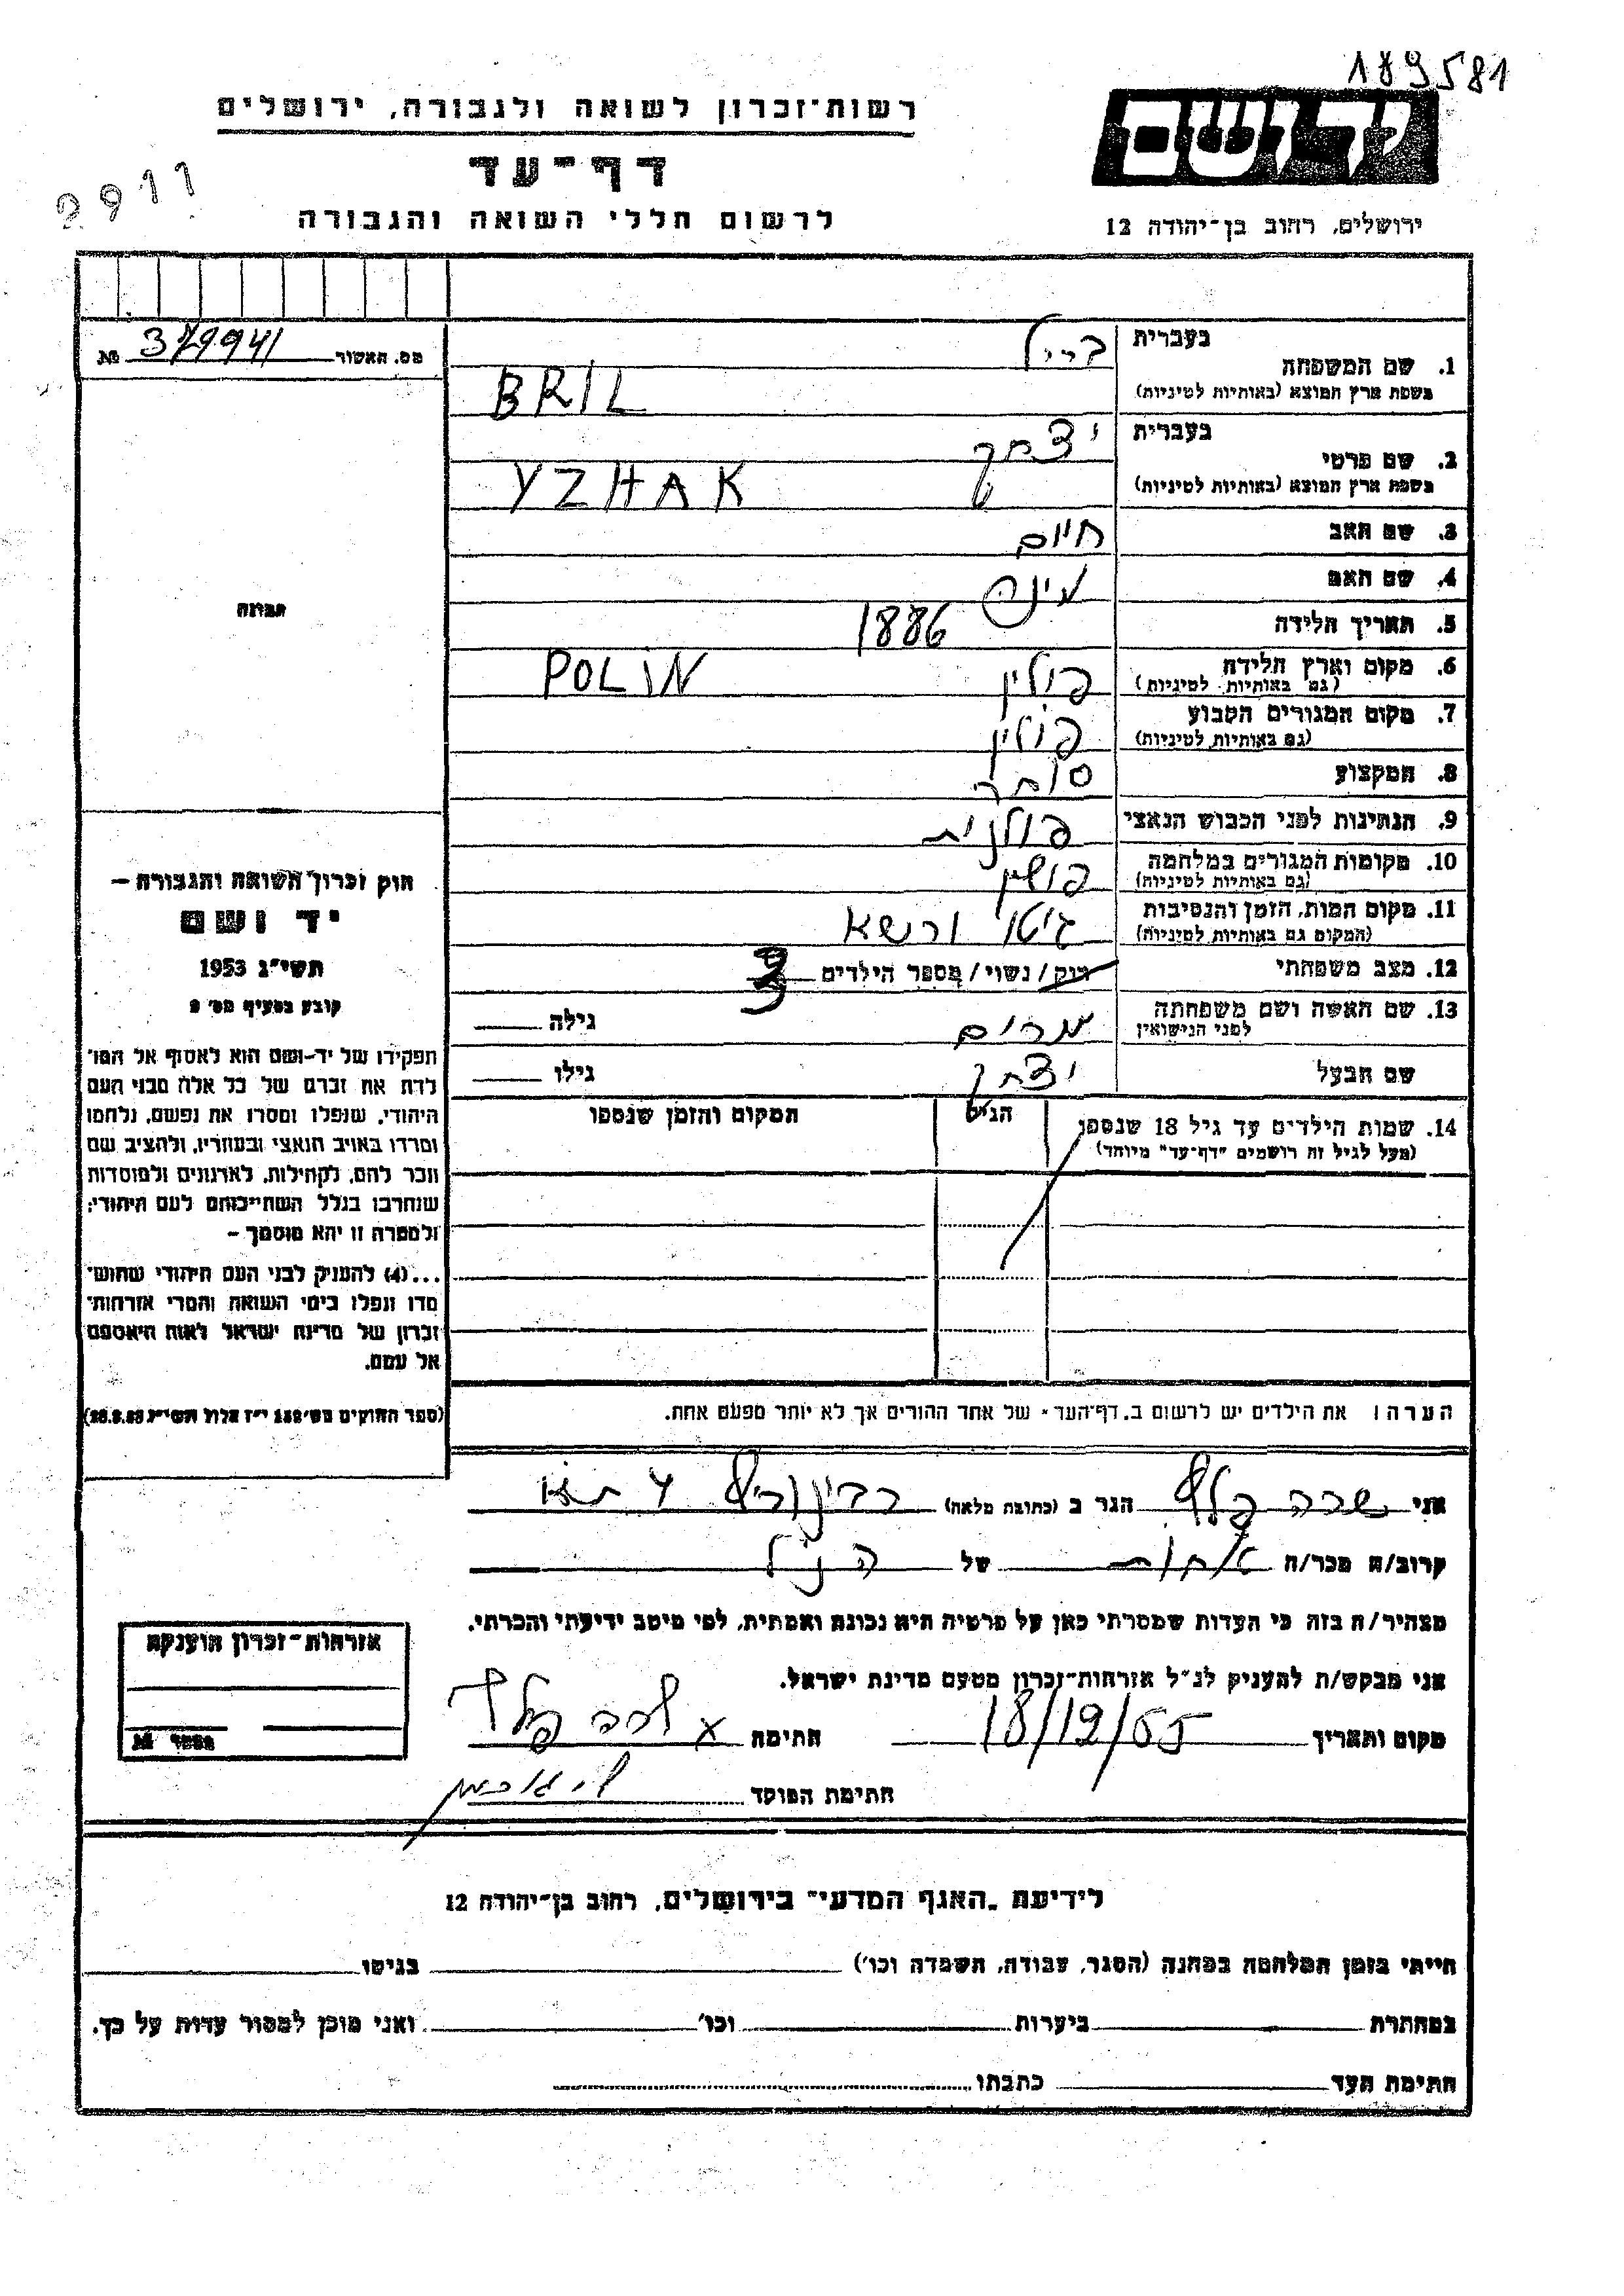 189581
רשות־זכרון לשואה ולגבורה, ירושלים
יד ושם
דף־עד
לרשום חללי השואה והגבורה
ירושלים, רחוב בן־יהודה 12
מס. האשור № 
1. שם המשפחה בעברית בריל
בשפת ארץ המוצא (באותיות לטיניות) BRIL
2. שם פרטי בעברית יצחק
בשפת ארץ המוצא (באותיות לטיניות) YZHAK
3. שם האב חיים
4. שם האם
5. תאריך הלידה 1886
6. מקום וארץ הלידה פולין POLIN
(גם באותיות לטיניות)
7. מקום המגורים הקבוע פולין
(גם באותיות לטיניות)
8. המקצוע סוחר
9. הנתינות לפני הכבוש הנאצי פולנית
10. מקומות המגורים במלחמה פולין
(גם באותיות לטיניות)
11. מקום המות, הזמן והנסיבות גיטו ורשא
(המקום גם באותיות לטיניות)
12. מצב משפחתי רוק / נשוי / מספר הילדים 3
13. שם האשה ושם משפחתה מרים גילה
לפני הנישואין
שם הבעל יצחק גילו
14. שמות הילדים עד גיל 18 שנספו הגיל המקום והזמן שנספו
(מעל לגיל זה רושמים "דף־עד" מיוחד)
הערה: את הילדים יש לרשום ב"דף־העד" של אחד ההורים אך לא יותר מפעם אחת.
תמונה
חוק זכרון השואה והגבורה –
יד ושם
תשי"ג 1953
קובע בסעיף מס' 2
תפקידו של יד-ושם הוא לאסוף אל המו־
לדת את זכרם של כל אלה מבני העם
היהודי, שנפלו ומסרו את נפשם, נלחמו
ומרדו באויב הנאצי ובעוזריו, ולהציב שם
וזכר להם, לקהילות, לארגונים ולמוסדות
שנחרבו בגלל השתייכותם לעם היהודי;
ולמטרה זו יהא מוסמך –
...(4) להעניק לבני העם היהודי שהוש־
מדו ונפלו בימי השואה והמרי אזרחות־
זכרון של מדינת ישראל לאות היאספם
אל עמם.
(ספר החוקים מס' 132 י"ז אלול תשי"ג 28.8.53)
אני שרה פלד הגר ב (כתובת מלאה)
קרוב/ה מכר/ה אחות של הנ"ל
מצהיר/ה בזה כי העדות שמסרתי כאן על פרטיה היא נכונה ואמתית, לפי מיטב ידיעתי והכרתי.
אני מבקש/ת להעניק לנ"ל אזרחות־זכרון מטעם מדינת ישראל.
מקום ותאריך 18/12/55 חתימה x שרה פלד
חתימת הפוקד
אזרחות־זכרון הוענקה
מספר №
לידיעת "האגף המדעי" בירושלים, רחוב בן־יהודה 12
הייתי בזמן המלחמה במחנה (הסגר, עבודה, השמדה וכו') בגיטו
במחתרת ביערות וכו' ואני מוכן למסור עדות על כך.
חתימת העד כתבתו